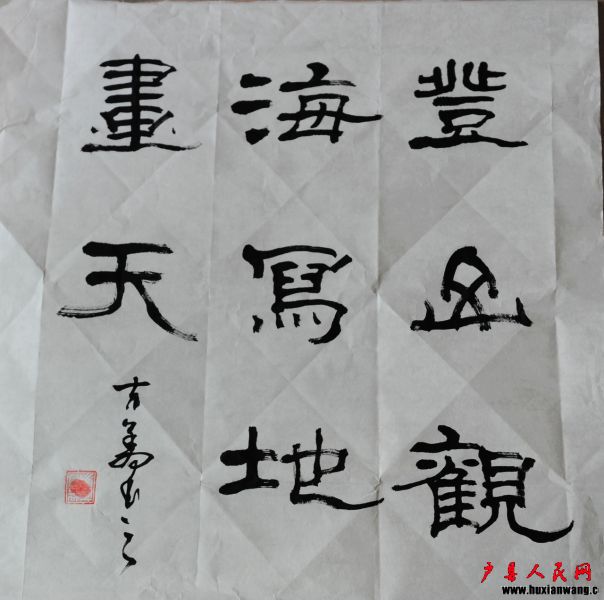 登山觀
海寫地
畫天
户县人民网
www.huxianwang.c